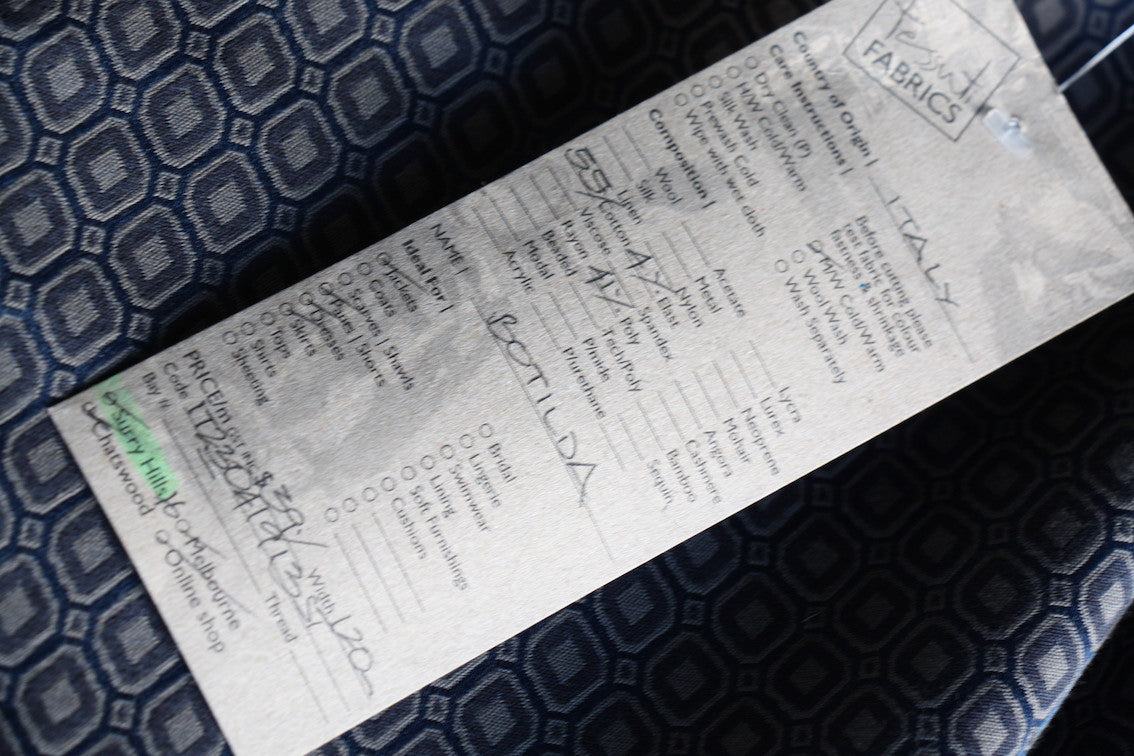 Tessuti
FABRICS
Country of Origin | ITALY
Care Instructions |
Before cutting please
test fabric for colour
fastness & shrinkage
Dry Clean (P)
H/W Cold/Warm
Silk Wash
Prewash Cold
Wipe with wet cloth
M/W Cold/Warm
Wool Wash
Wash Separately
Composition |
Wool
Silk
Linen
55% Cotton
Viscose
Rayon
Beaded
Modal
Acrylic
Acetate
Metal
Nylon
4% Elast
Spandex
41% Poly
Tech/Poly
P/mide
P/urethane
Lycra
Lurex
Neoprene
Mohair
Angora
Cashmere
Bamboo
Sequin
NAME | BOTILDA
Ideal For |
Jackets
Coats
Scarves | Shawls
Pants | Shorts
Dresses
Skirts
Tops
Shirts
Sheeting
Bridal
Lingerie
Swimwear
Lining
Soft Furnishings
Cushions
PRICE/m $39/ Width 120
Code
Thread
Bay #
Surry Hills 16
Melbourne
Chatswood
Online shop